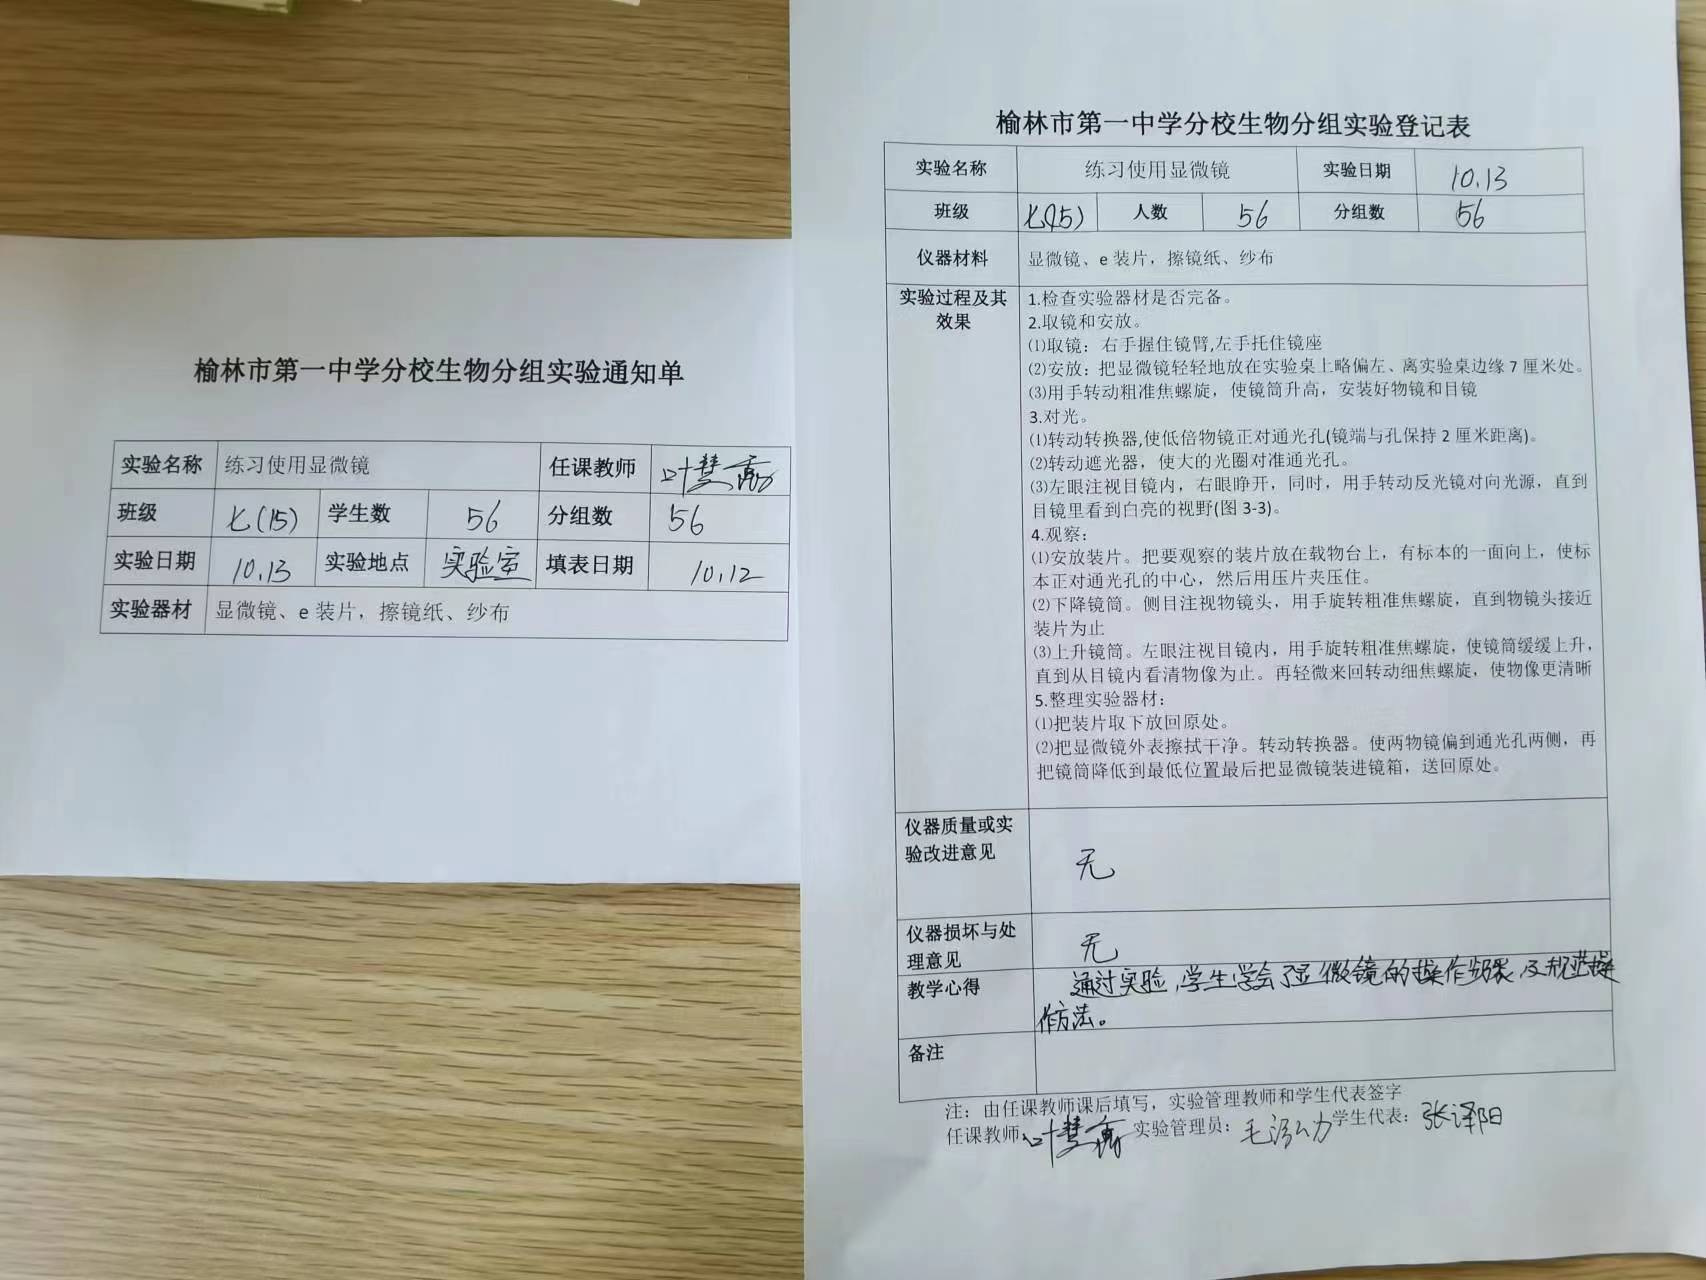 榆林市第一中学分校生物分组实验通知单
实验名称 练习使用显微镜 任课教师 叶慧
班级 七(15) 学生数 56 分组数 56
实验日期 10.13 实验地点 实验室 填表日期 10.12
实验器材 显微镜、e 装片，擦镜纸、纱布
榆林市第一中学分校生物分组实验登记表
实验名称 练习使用显微镜 实验日期 10.13
班级 七(15) 人数 56 分组数 56
仪器材料 显微镜、e 装片，擦镜纸、纱布
实验过程及其
效果
1.检查实验器材是否完备。
2.取镜和安放。
⑴取镜：右手握住镜臂,左手托住镜座
⑵安放：把显微镜轻轻地放在实验桌上略偏左、离实验桌边缘 7 厘米处。
⑶用手转动粗准焦螺旋，使镜筒升高，安装好物镜和目镜
3.对光。
⑴转动转换器,使低倍物镜正对通光孔(镜端与孔保持 2 厘米距离)。
⑵转动遮光器，使大的光圈对准通光孔。
⑶左眼注视目镜内，右眼睁开，同时，用手转动反光镜对向光源，直到
目镜里看到白亮的视野(图 3-3)。
4.观察：
⑴安放装片。把要观察的装片放在载物台上，有标本的一面向上，使标
本正对通光孔的中心，然后用压片夹压住。
⑵下降镜筒。侧目注视物镜头，用手旋转粗准焦螺旋，直到物镜头接近
装片为止
⑶上升镜筒。左眼注视目镜内，用手旋转粗准焦螺旋，使镜筒缓缓上升，
直到从目镜内看清物像为止。再轻微来回转动细焦螺旋，使物像更清晰
5.整理实验器材：
⑴把装片取下放回原处。
⑵把显微镜外表擦拭干净。转动转换器。使两物镜偏到通光孔两侧，再
把镜筒降低到最低位置最后把显微镜装进镜箱，送回原处。
仪器质量或实
验改进意见
无
仪器损坏与处
理意见
无
教学心得 通过实验，学生学会了显微镜的操作步骤及规范操
作方法。
备注
注：由任课教师课后填写，实验管理教师和学生代表签字
任课教师 叶慧 实验管理员：毛 学生代表：张译阳